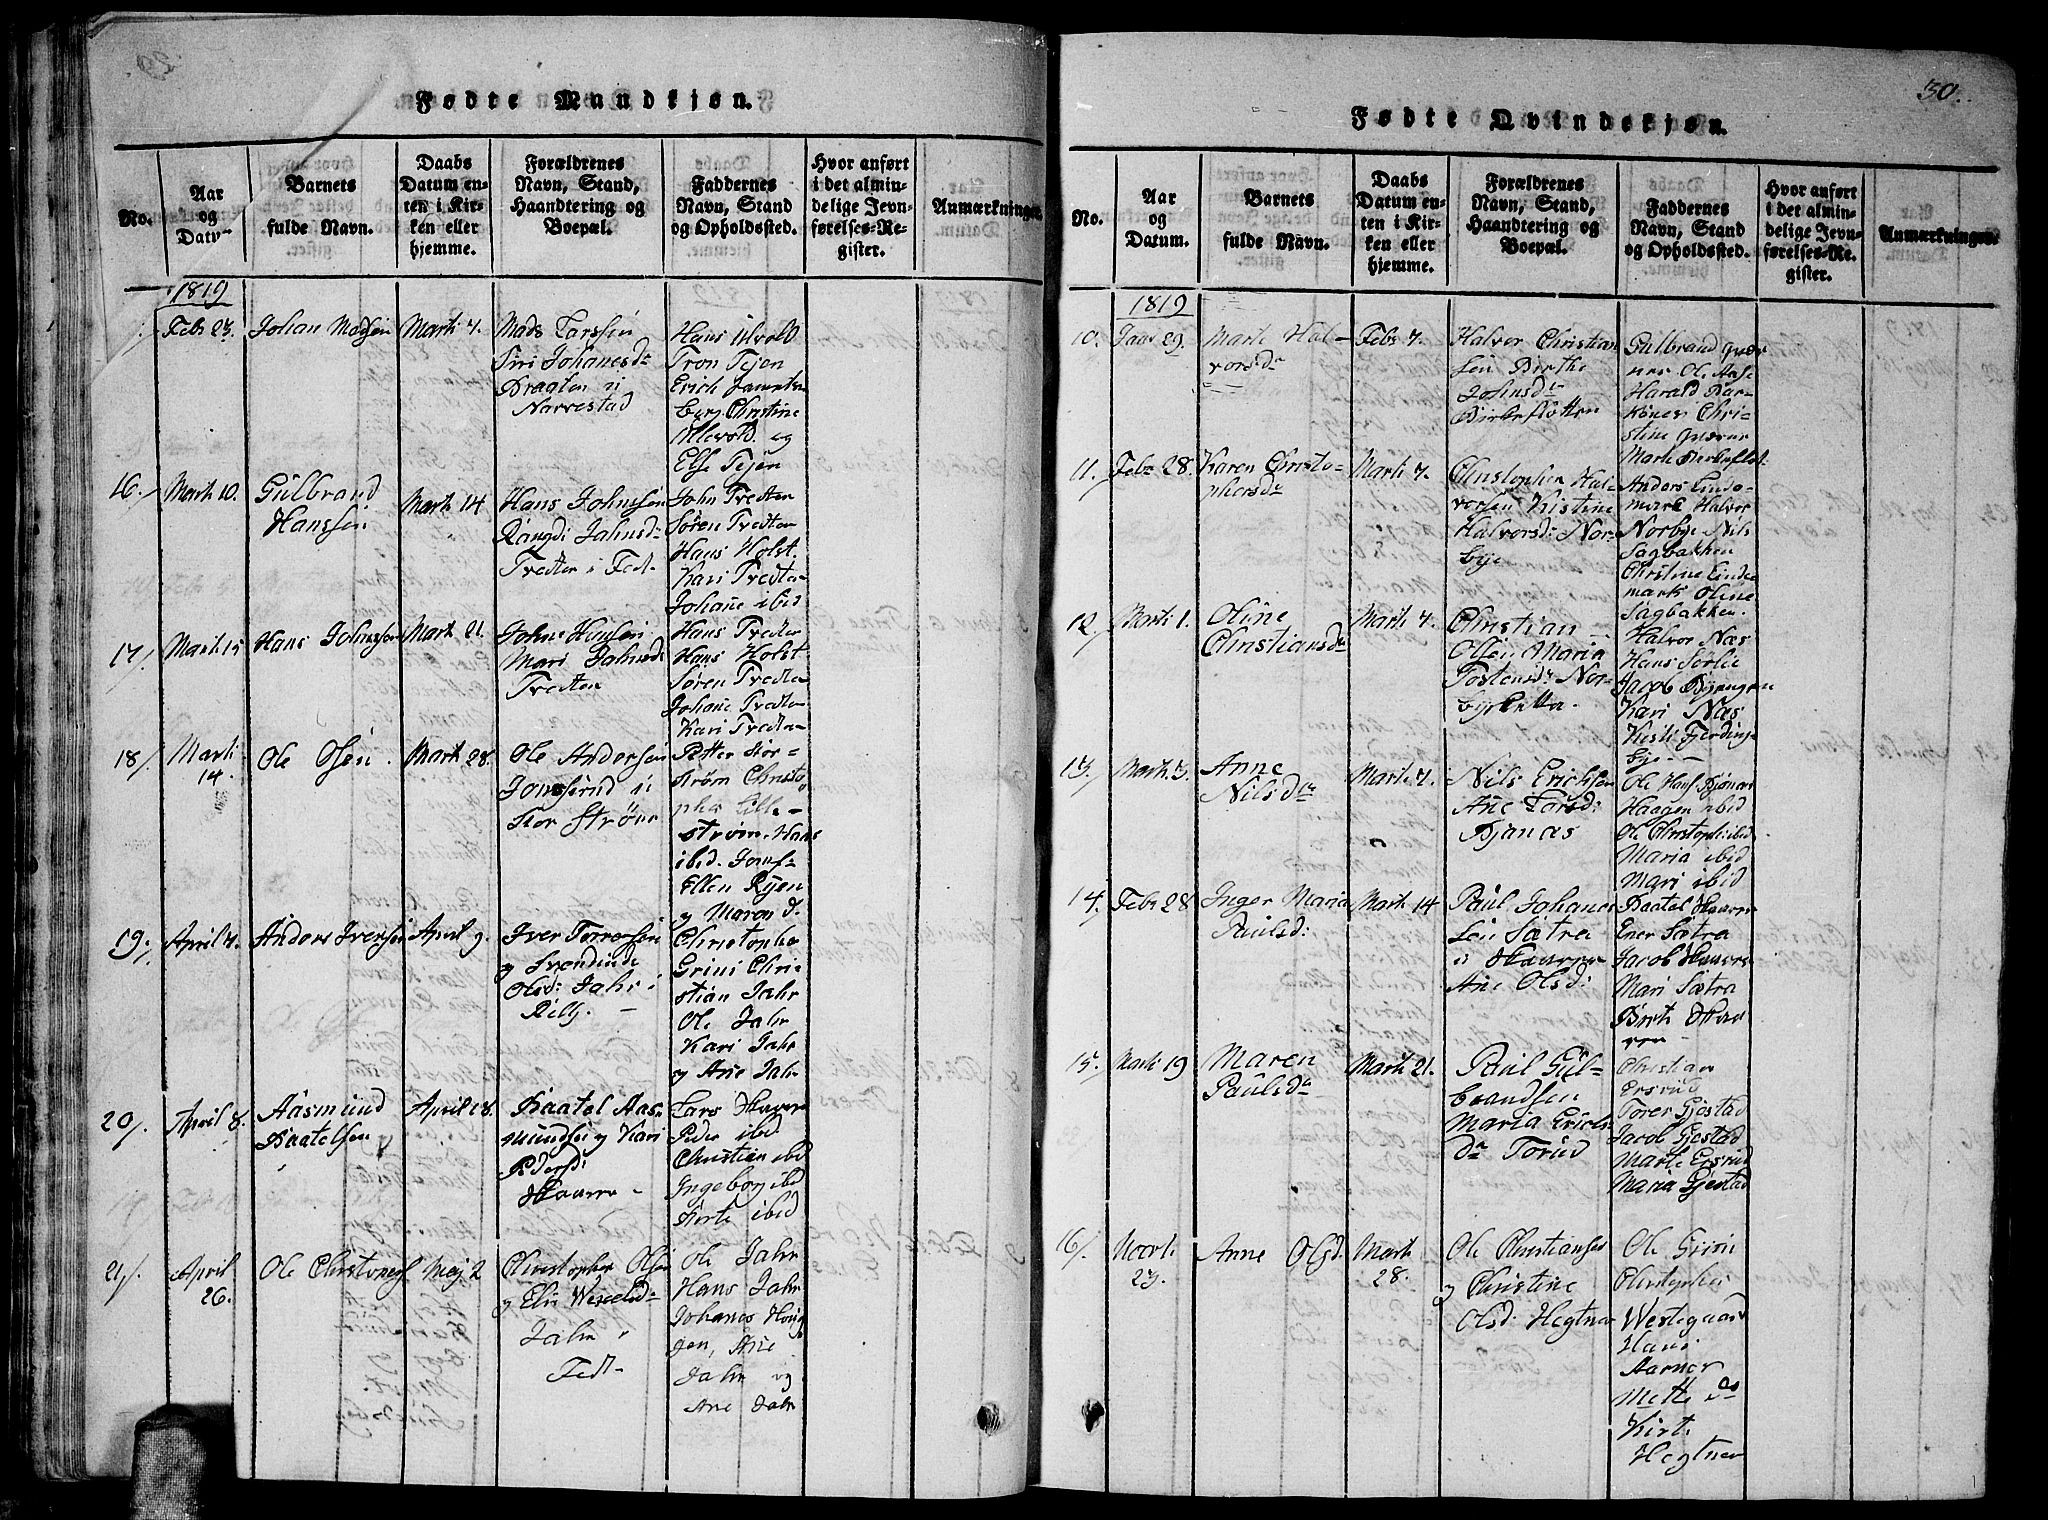 Fødte Mandkjøn.
No.
Aar
og
Datum
Barnets
fulde Navn.
Daabs
Datum en-
ten i Kir-
ken eller
hjemme.
Forældrenes
Navn, Stand,
Haandtering og
Boepæl.
Faddernes
Navn, Stand
og Opholdssted.
Hvor anført
i det almin-
delige Jevn-
førelses-Re-
gister.
Anmærkninger.
1819
Febr 23.
Johan Madsen
Marti 7.
Mads Larssen
Siri Johanesdr
Kragten i
Narvestad
Hans Ulvold
Tron Tejen
Erich
berg Christine
Ullevold og
Else Tejen
16/
Marti 10.
Gulbrand
Hanssen
Marti 14
Hans Johnsen
Rangdi Jahnsd:
Tvedten i Fed-
John Tvedten
Søren Tvedten
Hans Holst
Kari Tvedten
Johane ibid
17/.
Marti 15
Hans Johnsen
Marti 21.
John Hansen
Mari Jahnsd:
Tvedten
Hans Tvedten
Hans Holst
Søren Tvedten
Johane Tvedten
Kari Tvedten
18/.
Marti
14.
Ole Olsen
Marti 28.
Ole Andersen
Jonsrud i
Stor Strøm
Petter Stor-
strøm Christo
pher Lille-
strøm. Hans
ibid. Jomf-
Ellen Ryen
og Maren d.
19/.
April 4.
Anders Iversen
April 9.
Iver Torersen
og Svenninde
Olsd: Jahr i
Rælg. -
Christopher
Grini Chri-
stian Jahr
Ole Jahr
Kari Jahr
og Ane Jahr
20/.
April 8.
Aasmund
Baatelsen
April 18.
Baatel Aas-
mundsen og Kari
Pedersd:
Skaarer -
Lars Skaarer
Peder ibid
Christian ibid
Ingeborg ibid
Berte ibid
21/.
April
26.
Ole Christophers
Mej 2
Christopher Olsen
og Elin Wexelsd:
Jahr
Fed-
Ole Jahr
Hans Jahr
Johanes Houg
gen, Ane
Jahr og
Ane Jahr
30.
Fødte Qvindekjøn.
No.
Aar
og
Datum.
Barnets
fulde Navn.
Daabs
Datum en-
ten i Kir-
ken eller
hjemme.
Forældrenes
Navn, Stand,
Haandtering og
Boepæl.
Faddernes
Navn, Stand
og Opholdssted.
Hvor anført
i det almin-
delige Jevn-
førelses-Re-
gister.
Anmærkninger.
1819
10.
Janr 29.
Marte Hal-
vorsdr
Febr 7.
Halvor Christian
sen Birthe
Johnsdr
Birkeflotten
Gulbrand Qvær
nes Ole Aase
Harald Bar-
Chri-
stine Qværner
Marte Birkeflot:
11.
Febr 28.
Karen Christo-
phersdr
Marti 7.
Christopher Hal-
vorsen Kistine
Halvorsd: Nor-
bye
Anders Linde-
mark Halvor
Norbye Nils
Sagbakken
Christine Linde
mark Oline
Sagbakken.
12/
Marti 1.
Oline
Christiansdr
Marti 7.
Christian
Olsen Maria
Tostensd: Nor-
byesletta.
Halvor Næs
Hans Sørlie
Jacob Bjerngen
Kari Næs
Kisti Fjerding-
bye -
13/
Marti 3.
Anne
Nilsdr
Marti 7.
Nils Erichsen
Ane Larsd:
Bjønaas
Ole Hans Bjønaas
Haagen ibid
Ole Christoph: ibid
Maria ibid
Mari ibid
14.
Febr 28
Inger Maria
Paulsd:
Marti 14
Paul Johanes
sen Sætra
i Skaarer
Ane Olsd:
Baatel Skaarer
Ener Sætra
Jacob Skaarer
Mari Sætra
Birte Skaa
rer -
15/
Marti 19
Maren
Paulsdr
Marti 21.
Paul Gul-
brandsen
Maria Erichs
dr Torud
Christian
Ersrud
Torer Gjestad
Jacob Gjestad
Marte Ersrud
Maria Gjestad
16/.
Marti
23.
Anne Olsd.
Marti
28.
Ole Christiansen
og Christine
Olsd: Hegtner
Ole Grini
Christopher
Westegaard
Hans
Aarnes
Mette ds
Kirt.
Hegtner